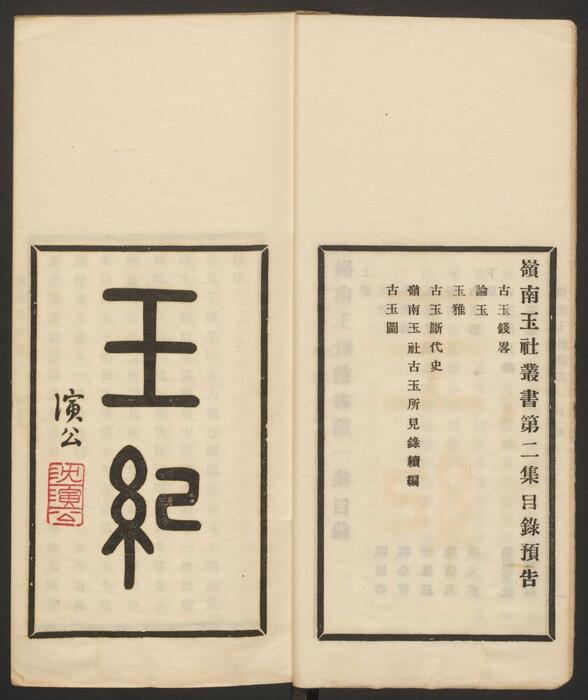 嶺南玉社叢書第二集目錄預告
古玉錢畧
論玉
玉雅
古玉斷代史
嶺南玉社古玉所見錄續編
古玉圖
王紀
演公
沈演公